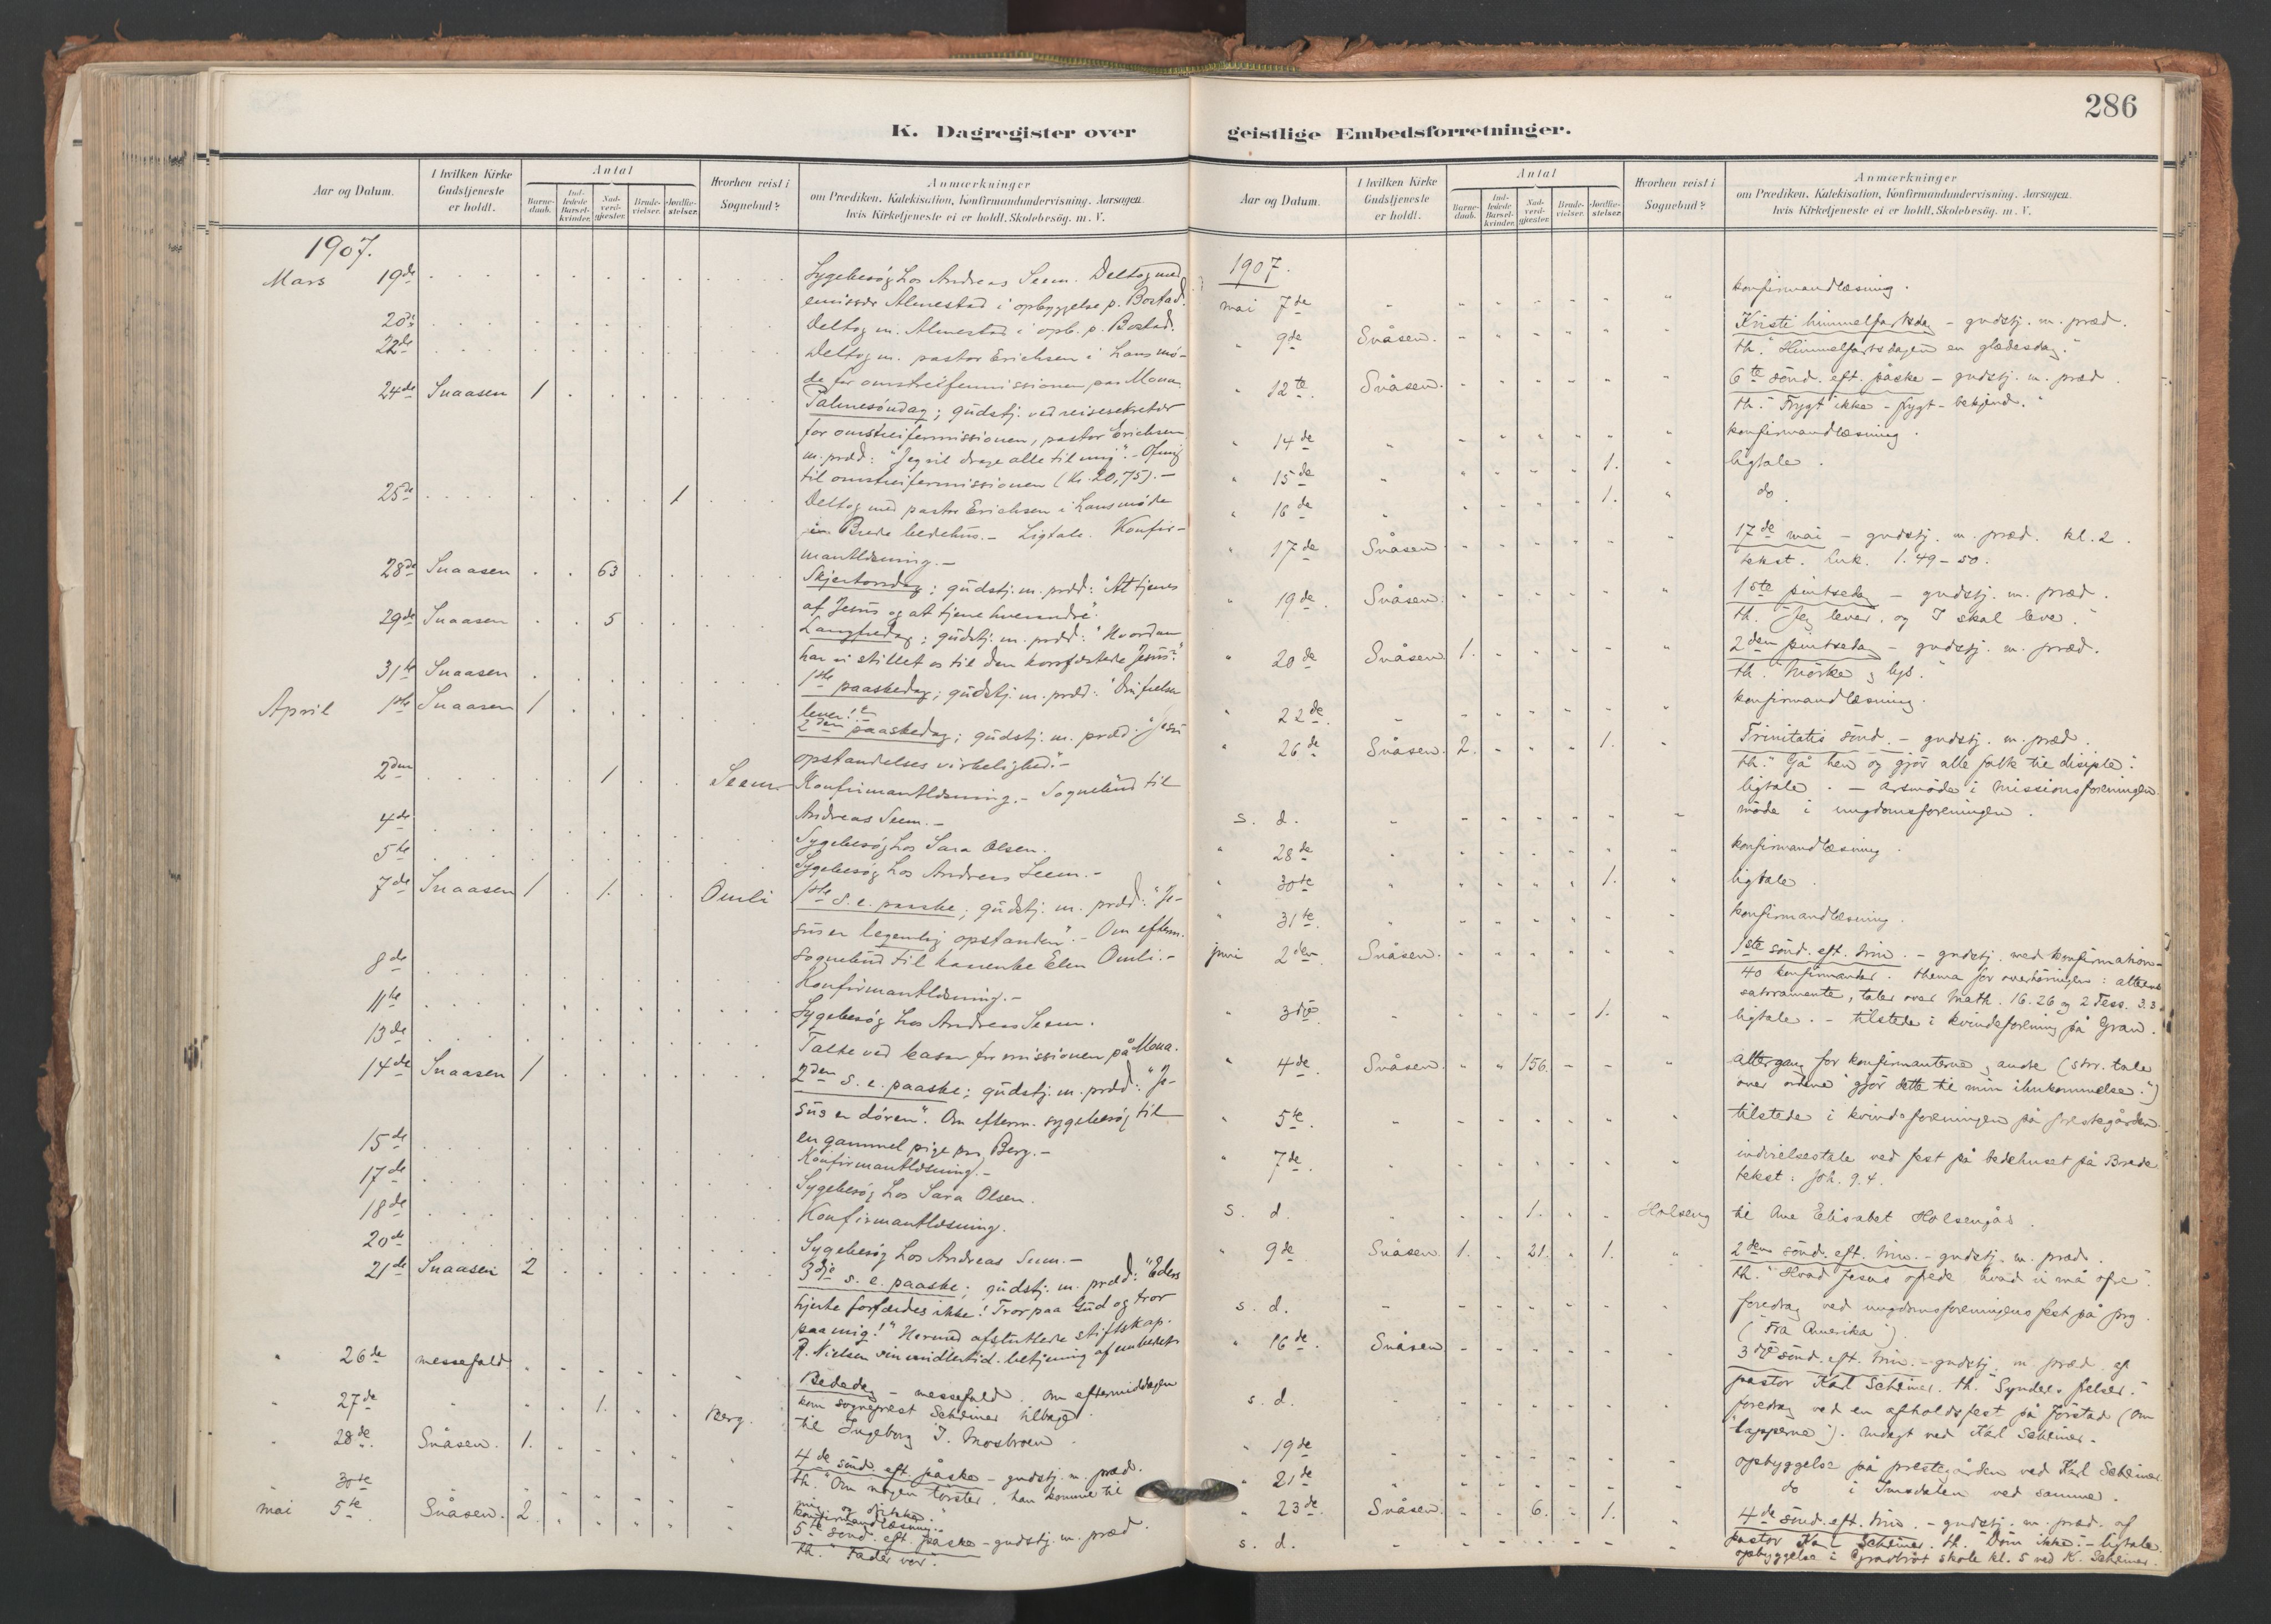 K. Dagregister over
Aar og Datum.
I hvilken Kirke Gudstjeneste er holdt.
Antal
Barne-daab.
Ind-ledede Barsel-kvinder.
Nad-verd-gjester.
Brude-vielser.
Jordfæ-stelser.
Hvorhen reist i Sognebud?
Anmærkninger
om Prædiken, Katekisation, Konfirmandundervisning. Aarsagen
hvis Kirketjeneste ei er holdt. Skolebesög. m. V.
1907.
Mars 19de Sygebesög hos Andreas Seem. Deltog med
emissær Almestad i opbyggelse p. Bostad.
20de Deltog m. Almestad i opb. p. Bostad.
22de Deltog m. pastor Erichsen i Lansmö-
de for omstreifermissionen paa Mona.
24de Snaasen 1 Palmesöndag; gudstj. ved reisesekretær
for omstreifermissionen, pastor Erichsen
m. præd: "Jeg vil drage alle til mig". - Ofring
til omstreifermissionen (Kr. 20,75). -
25de 1 Deltog med pastor Erichsen i Lansmöde
Brede bedehus. - Ligtale. Konfir-
mantlæsning. -
28de Snaasen 63 Skjertorsdag; gudstj. m. præd: "At tjenes
af Jesus og at tjene hverandre".
29de Snaasen 5 Langfredag; gudstj. m. præd: "Hvordan
har vi stillet os til den korsfæstede Jesus?"
31te Snaasen 1ste paaskedag; gudstj. m. præd: "Din frelser
lever!"
April 1ste Snaasen 1 2den paaskedag; gudstj. m. præd: "Jesu
opstandelses virkelighed." -
2den 1 Seem Konfirmantlæsning. - Sognebud til
Andreas Seem. -
4de Sygebesög hos Sara Olsen.
5te Sygebesög hos Andreas Seem. -
7de Snaasen 1 1. Omli 1ste s. e. paaske; gudstj. m. præd: "Je-
sus er legemlig opstanden". - Om efterm.
sognebud til Elen Omli. -
8de Konfirmantlæsning. -
11te Sygebesög hos Andreas Seem.
13de Talte ved basar for missionen på Mona.
14de Snaasen 1 2den s. e. paaske; gudstj. m. præd: "Je-
sus er dören". Om efterm. sygebesög til
en gammel pige paa Berg. -
15de Konfirmantlæsning. -
17de Sygebesög hos Sara Olsen.
18de Konfirmantlæsning.
20de Sygebesög hos Andreas Seem. -
21de Snaasen 2 3dje s. e. paaske; gudstj. m. præd: "Eders
hjerte forfærdes ikke! Tror paa Gud og tror
paa mig!" Hermed afsluttede stiftskap.
R. Nielsen sin midlertid. betjening af embedet.
" 26de messefald Bededag - messefald. Om eftermiddagen
kom sogneprest Scheiner tilbage.
" 27de 1. Berg. til Ingeborg J. Mosbroen.
" 28de Snåsen. 1. 4de sönd. eft. påske - gudstj. m. præd.
th. "Om nogen törster, han komme til
mig og drikke."
" 30te konfirmandlæsning.
mai 5te Snåsen. 2. 5te sönd. eft. påske - gudstj. m. præd.
th. "Fader vor".
286
geistlige Embedsforretninger.
Aar og Datum.
I hvilken Kirke Gudstjeneste er holdt.
Antal
Barne-daab.
Ind-ledede Barsel-kvinder.
Nad-verd-gjester.
Brude-vielser.
Jordfæ-stelser.
Hvorhen reist i Sognebud?
Anmærkninger
om Prædiken, Katekisation, Konfirmandundervisning. Aarsagen
hvis Kirketjeneste ei er holdt. Skolebesög. m. V.
1907.
mai 7de konfirmandlæsning.
" 9de Snåsen. Kristi himmelfartsdag - gudstj. m. præd.
th. "Himmelfartsdagen en glædesdag."
" 12te Snåsen. 6te sönd. eft. påske - gudstj. m. præd.
th. "Frygt ikke - frygt - bekjend."
" 14de konfirmandlæsning.
" 15de 1. ligtale.
" 16de 1. do.
" 17de Snåsen 17de mai - gudstj. m. præd. kl. 2.
tekst. Luk. 1. 49-50.
" 19de Snåsen. 1ste pintsedag - gudstj. m. præd.
th. "Jeg lever, og I skal leve."
" 20de Snåsen 1. 2den pintsedag - gudstj. m. præd.
th. "Mörke og lys."
" 22de konfirmandlæsning.
" 26de Snåsen. 2. 1. Trinitatis sönd. - gudstj. m. præd.
th. "Gå hen og gjör alle folk til disiple."
ligtale. - årsmöde i missionsforeningen
s. d. möde i ungdomsforeningen.
" 28de konfirmandlæsning
" 30te 1. ligtale.
" 31te konfirmandlæsning.
juni 2den Snåsen. 1ste sönd. eft. trin. - gudstj. med konfirmation -
40 konfirmander. thema for overhöringen: alterens
sakramente, taler over Math. 16.26 og 2 Tess. 3.3.
" 3dje 1. ligtale. - tilstede i kvindeforening på Gran.
" 4de Snåsen. 156. altergang for konfirmanterne og andre (skr. tale
over ordene "gjör dette til min ihukommelse.")
" 5te. tilstede i kvindeforeningen på prestegården
" 7de. indvielsestale ved fest på bedehuset på Brede
tekst: Joh. 9.4.
s. d. 1. Holseng til Ane Elisabet Holsengås.
" 9de Snåsen. 1. 21. 1. 2den sönd. eft. trin. - gudstj. m. præd.
th. "Hvad Jesus ofrede hvad vi må ofre".
s. d. foredrag ved ungdomsforeningens fest på prg.
("Fra Amerika").
" 16de Snåsen 3dje sönd. eft. trin. - gudstj. m. præd. af
pastor Karl Scheiner. th. "Synderes frelser."
s. d. foredrag ved en afholdsfest på Jörstad (om
"lapperne"). Andagt ved Karl Scheiner.
" 19de opbyggelse på prestegården ved Karl Scheiner
" 21de do i Imsdalen ved samme.
" 23de Snåsen. 6. 1. 4de sönd. eft. trin. - gudstj. m. præd. af
pastor Karl Scheiner. th. "Döm ikke." - ligtale.
s. d. opbyggelse i skole kl. 5 ved K. Scheiner.